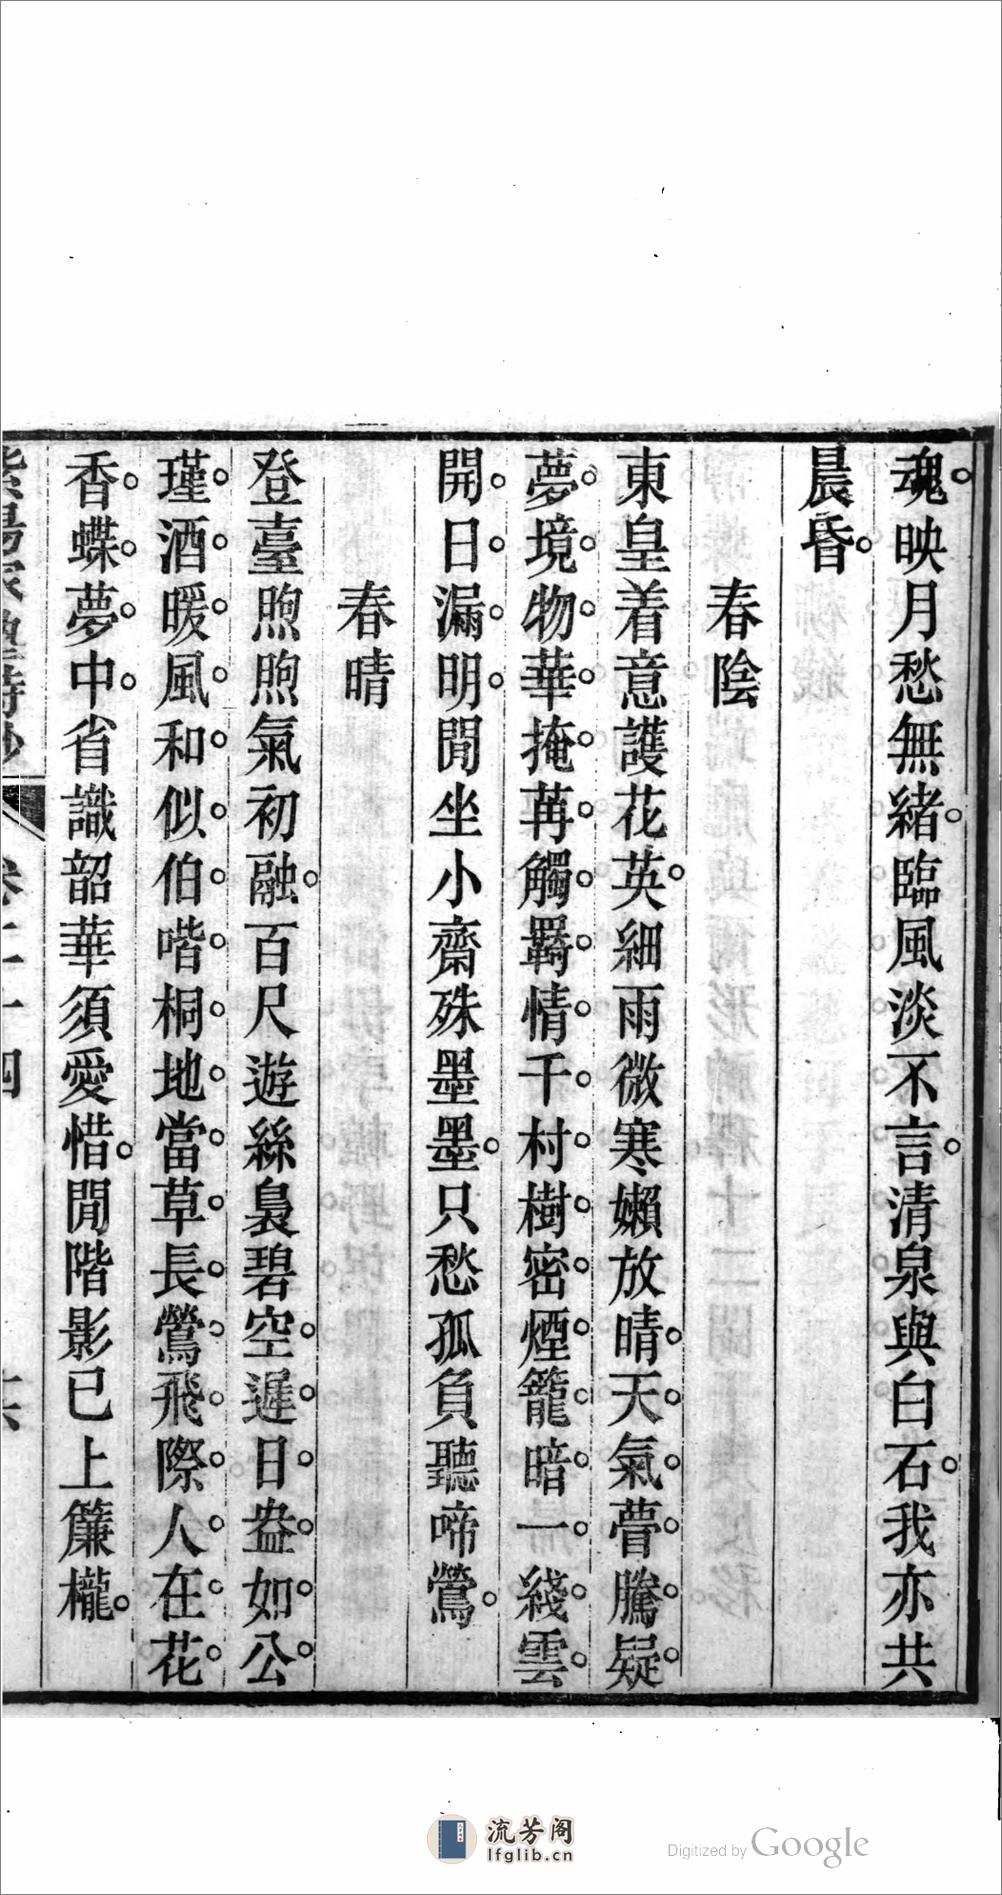 魂映月愁無緒臨風淡不言清泉與白石我亦共
晨昏
春陰
東皇着意護花英細雨微寒嬾放晴天氣瞢騰疑
夢境物華掩苒觸羇情千村樹密煙籠暗一綫雲
開日漏明閒坐小齋殊墨墨只愁孤負聽啼鶯
春晴
登臺煦煦氣初融百尺遊絲裊碧空遲日盎如公
瑾酒暖風和似伯喈桐地當草長鶯飛際人在花
香蝶夢中省識韶華須愛惜閒階影已上簾櫳
流芳阁
lfglib.cn
Digitized by Google